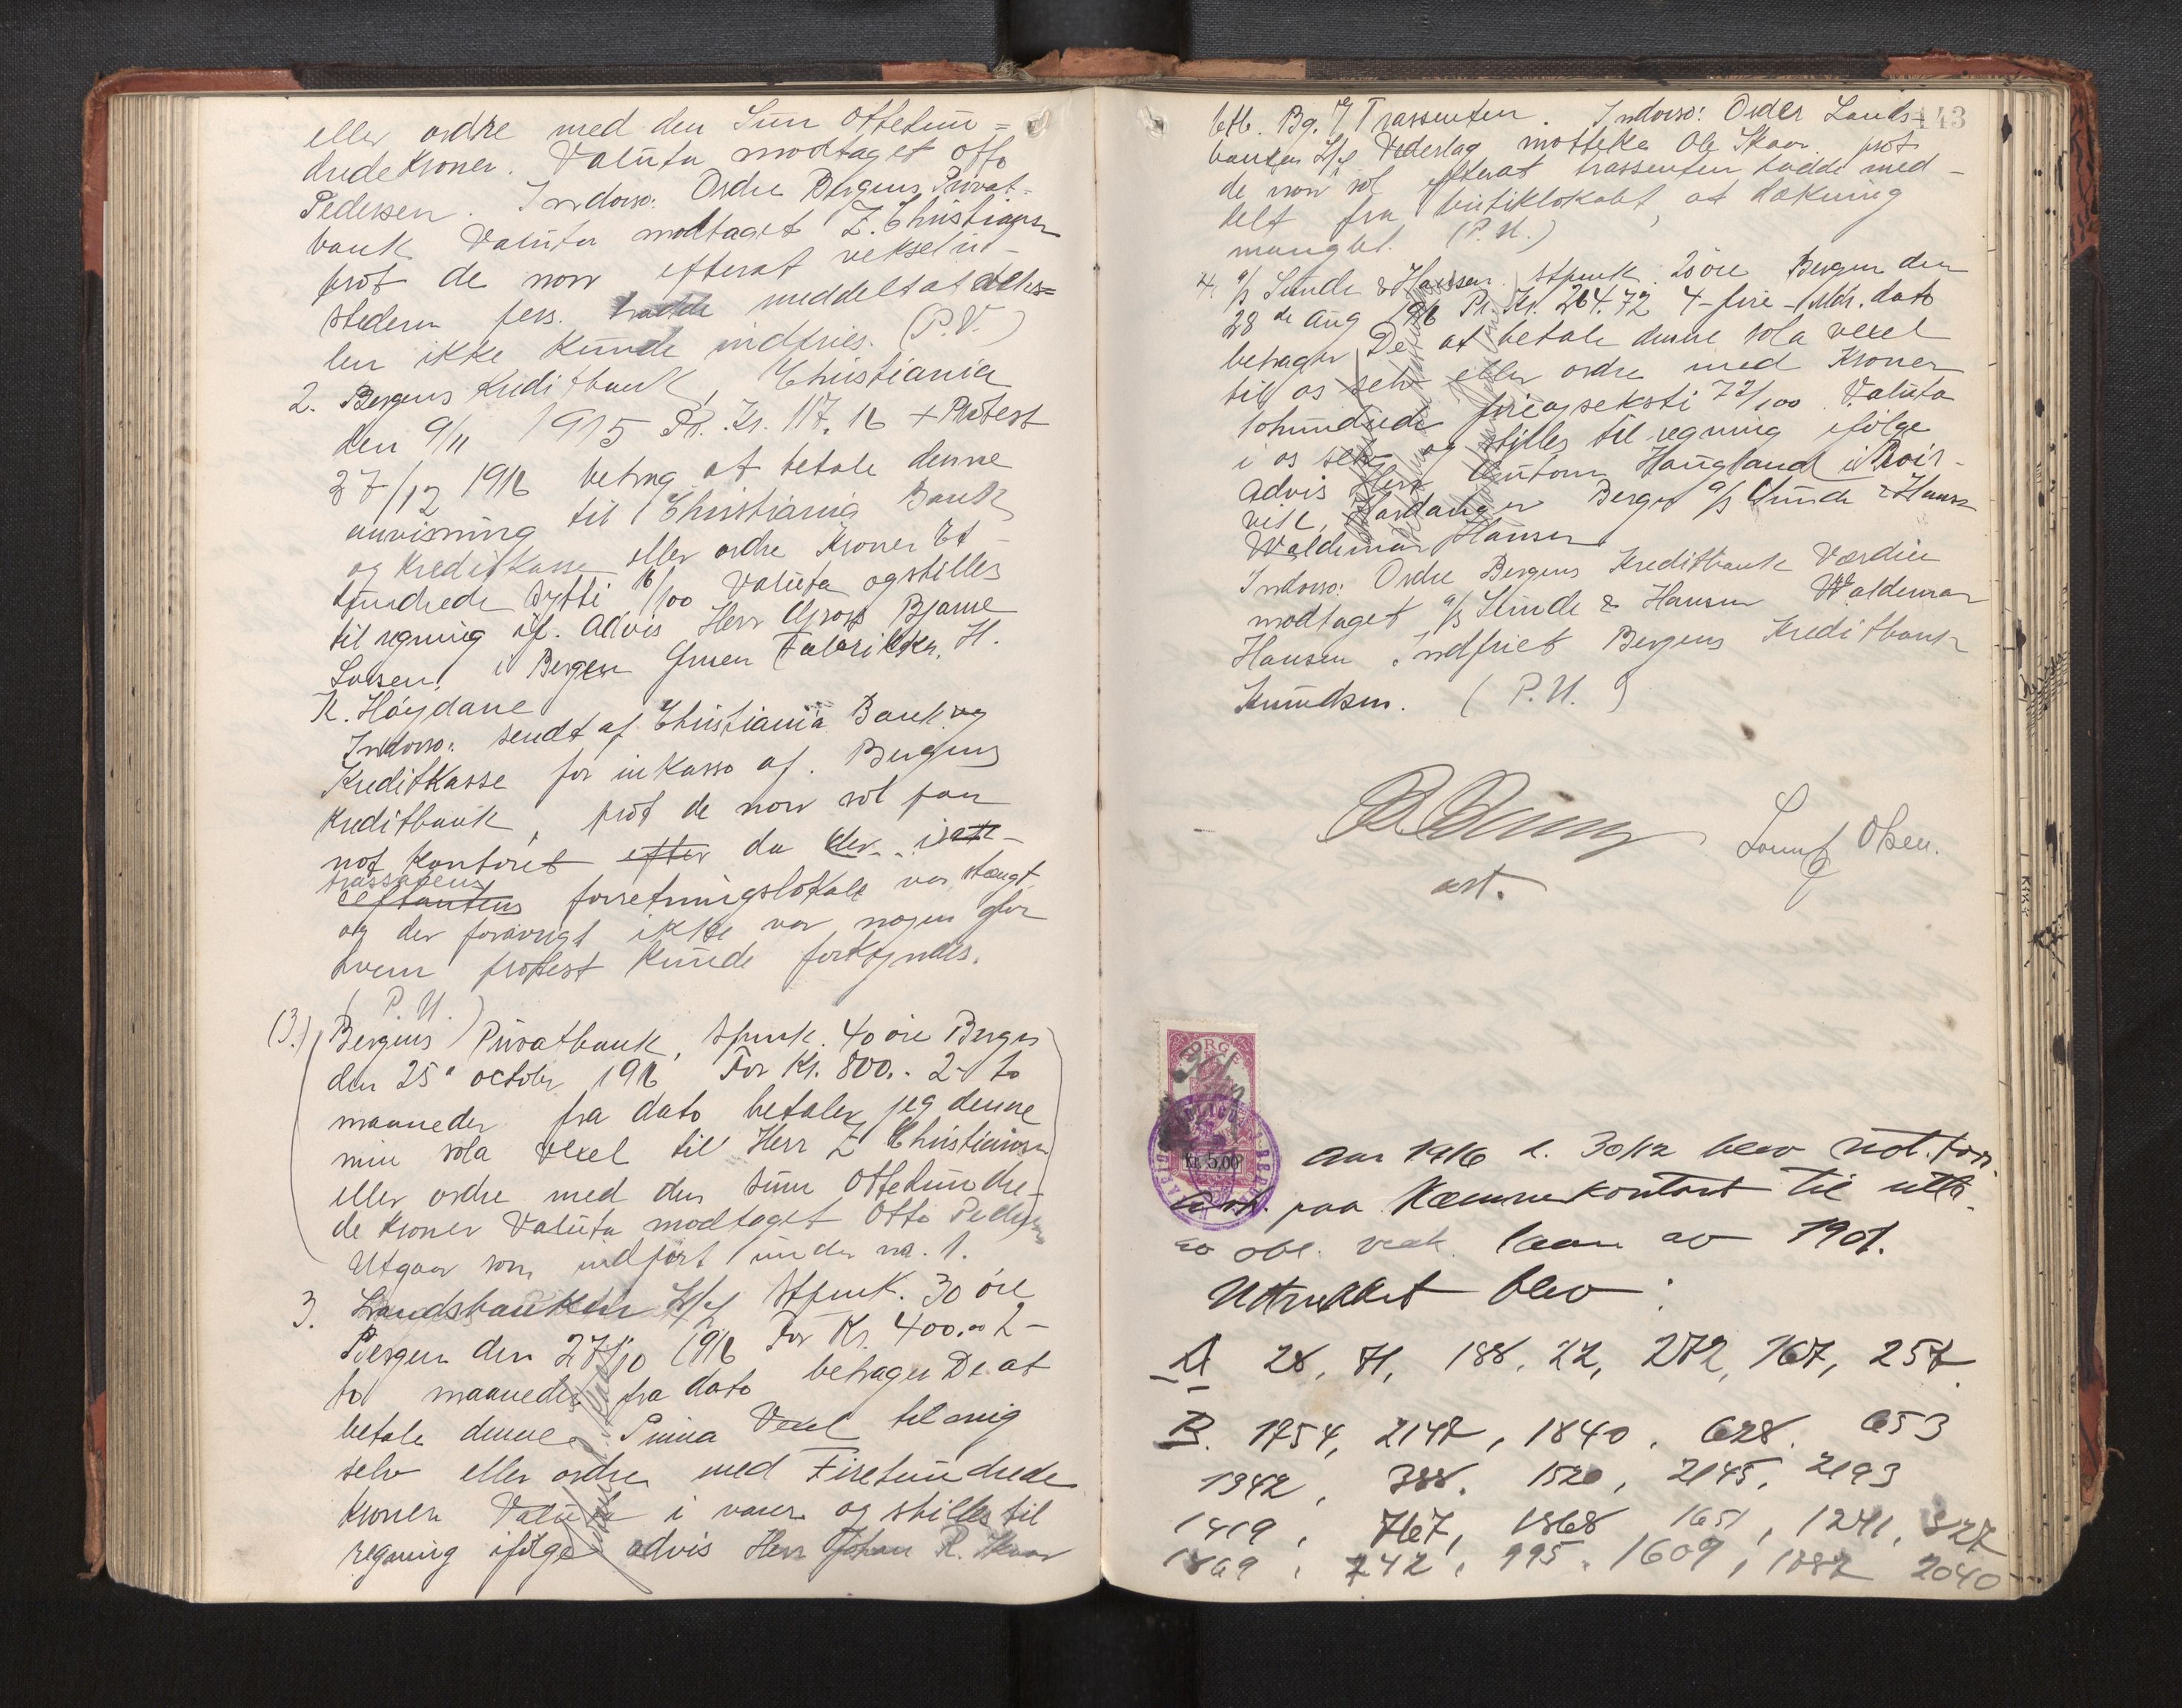 eller ordre med den Sum Ottehun=
drede Kroner. Valuta modtaget Otto
Pedersen. Indorso: Ordre Bergens Privat-
bank Valuta modtaget Z. Christiansen
prot de non efterat vekselut-
stederen pers. hadde meddelt at vekse=
len ikke kunde indfries. (P.U.)
2. Bergens Kreditbank, Christiania
den 9/11 1915 Pr. Kr. 117.16 + Protest
27/12 1916 betrag at betale denne
anvisning til Christiania Bank
og Kreditkasse eller ordre Kroner Et
hundrede sytti 16/100 Valuta og stilles
til regning if. Advis Herr Bjarne
Larsen, i Bergen Fabrikker, H.
K. Høydane
Indorso: sendt af Christiania Bank og
Kreditkasse for inkasso af Bergens
Kreditbank, prot de non sol paa
not kontoret efter da der i
trassatens
forretningslokale var stengt
og der forøvrigt ikke var nogen for
hvem protest kunde forkyndes.
(P.U.)
(3.) Bergens Privatbank, stpmk. 40 øre Bergen
den 25' october 1916 For Kr. 800.- 2- to
maaneder fra dato betaler jeg denne
min sola vexel til Herr Z Christiansen
eller ordre med den sum Ottehundre-
de Kroner Valuta modtaget Otto Pedersen
Utgaar som indført under no. 1.
3. Landsbanken A/S Stpmk. 30 øre
Bergen den 27/10 1916 For Kr. 400.00 2-
to maaneder fra dato behager De at
betale denne Prima Vexel til mig
selv eller ordre med Firehundrede
Kroner Valuta i varer og stilles til
regning ifølge advis Herr Johan R. Skaar
143
etc. Bg. Trassenten. Indorso: Order Lands-
banken A/S Vederlag motteke Ole Skaar prot
de non sol efterat trassenten hadde med-
delt fra butiklokalet, at dækning
manglet. (P.U.)
4. A/S Sunde & Hansen. Stpmk. 20 øre Bergen den
28 de Aug 1916 Pr. Kr. 264.72 4-fire-Mdr. dato
behager De at betale denne sola vexel
til os selv eller ordre med Kroner
tohundrede firiogseksti 72/100 Valuta
i os selv og stilles til regning ifølge
Advis Herr Haugland i
vik, Hardanger Bergen A/S Sunde & Hansen
Waldemar Hansen
Indorso: Ordre Bergens Kreditbank Værdien
modtaget A/S Sunde & Hansen Waldemar
Hansen Indfriet Bergens Kreditbank
Knudsen. (P.U.)
Olsen.
ast.
NORGE
Kr. 5,00
Aar 1916 d. 30/12 blev not. forr.
paa Kæmnerkontoret til uttr.
av obl. vedk. laan av 1901.
Uttrukket blev:
A 28, 71, 188, 22, 272, 167, 257.
B. 1754, 2147, 1840, 628, 653
1942, 388, 1520, 2145, 2193
1419, 767, 1868 1651, 1241, 327
1869, 742, 995, 1609, 1882 2040